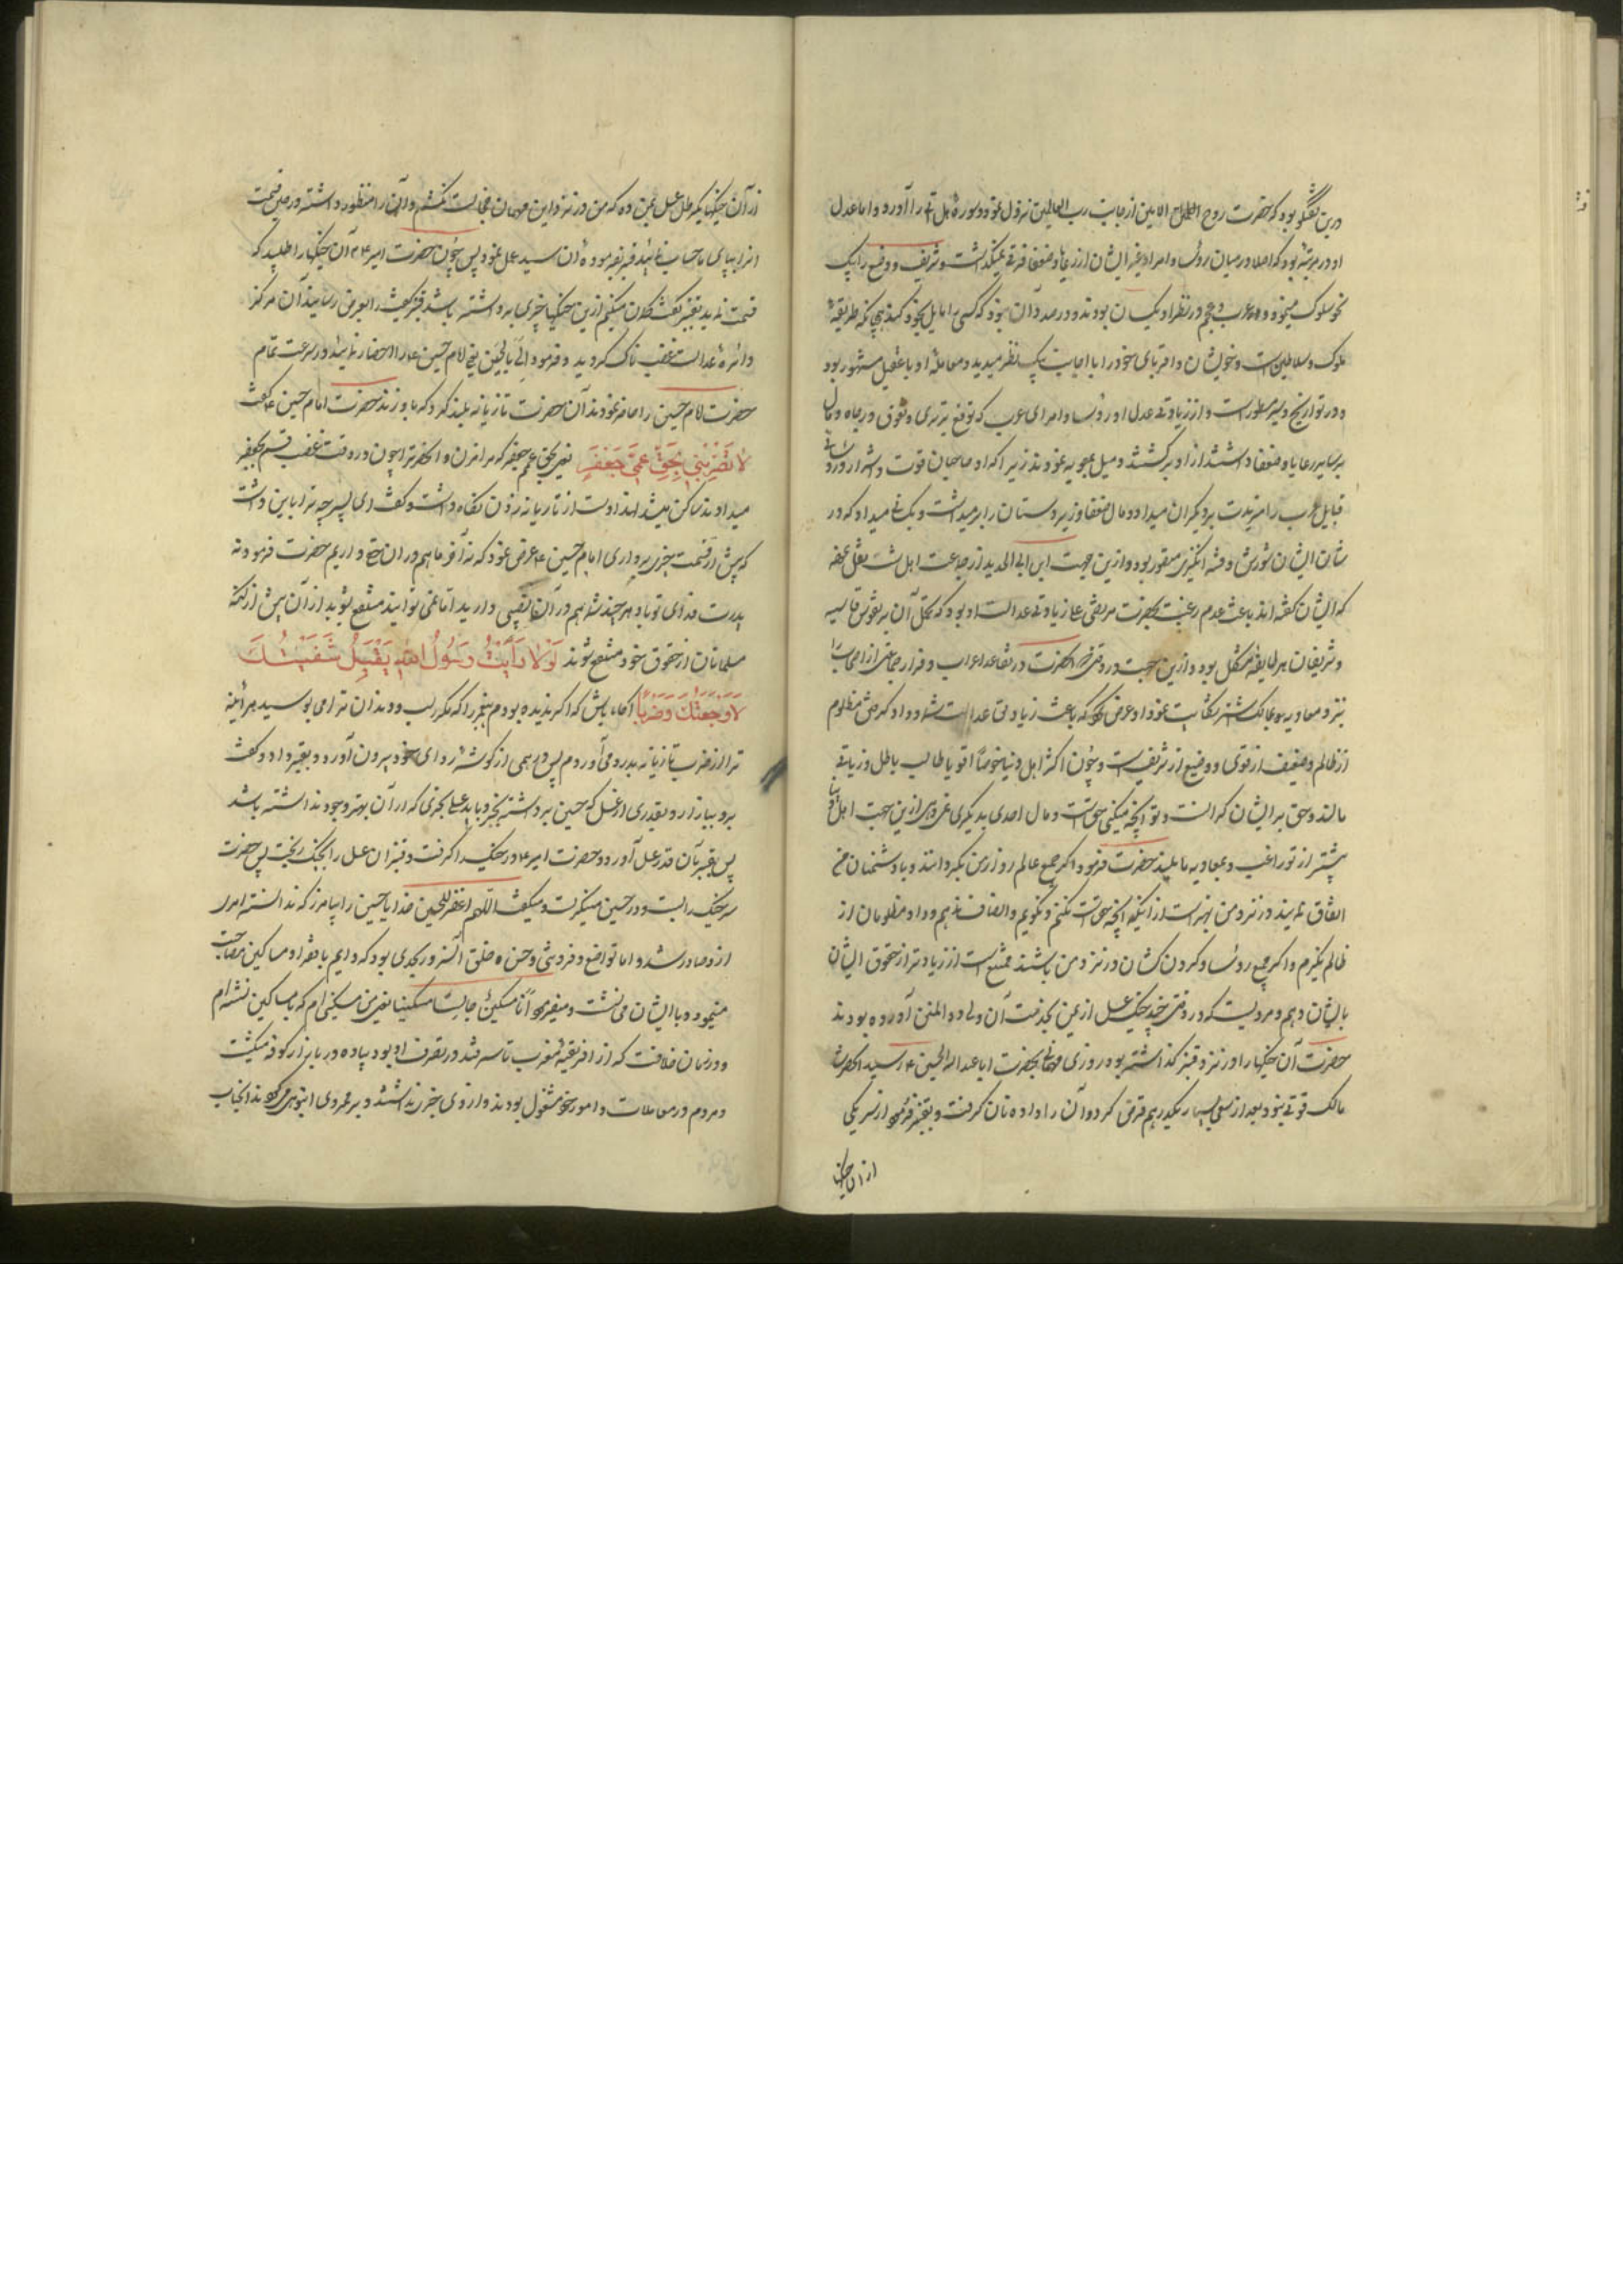 درین گفتگو بود که حضرت روح الامین از جانب رب العالمین نزول نمود و سوره هل اتی را آورد و اما عدل
او در مرتبه بود که اصلا در میان روسا و امرا و غیر ایشان از رعایا و ضعفا فرقی نمیگذاشت و شریف و وضیع را بیک
نحو سلوک مینمود و عرب و عجم در نظر او یکسان بودند و در صدد آن نبود که کسی را مایل بخود کند چنانکه طریقهٔ
ملوک و سلاطین است و خویشان و اقربای خود را با اجانب بیک نظر میدید و معاملهٔ او با عقیل مشهور بود
و در تواریخ و سیر مسطور است و از زیادتی عدل او روسا و امرای عرب که توقع برتری و تفوق در جاه و مال
بر سایر رعایا و ضعفا داشتند از او برگشتند و میل بمعویه نمودند زیرا که او صاحبان قوت و اشرار و روسای
قبایل عرب را مزیت بر دیگران میداد و مال ضعفا و زیردستان را برمیداشت و بکسانی میداد که در
شان ایشان شورش و فتنه انگیزی متصور بود و ازین جهت ابن ابی الحدید از جماعت اهل سنت نقل نموده
که ایشان گفته اند باعث عدم رغبت بحضرت مرتضی علی زیادتی عدالت او بود که تحمل آن بر نفوس قاسیه
و شریفان هر طایفه مشکل بود و ازین جهت در وقتی که آنحضرت در تقاعد اعراب و فرار جماعتی از اصحاب
بنزد معاویه بمالک اشتر شکایت نمود او عرض کرد که باعث زیادتی عدالت شما و داد گرفتن مظلوم
از ظالم و ضعیف از قوی و وضیع از شریف است و چون اکثر اهل دنیا خصوصا اقویا طالب باطل و زیادتی
مالند و حق بر ایشان گرانست و تو آنچه میکنی حق است و مال احدی بدیگری نمی دهی ازین جهت اهل دنیا
پیشتر از تو راغب و بمعاویه مایلند حضرت فرمود اگر جمیع عالم رو از من بگردانند و با دشمنان من
اتفاق نمایند در نزد من بهتر است از اینکه آنچه حق است نکنم و نگویم و انصاف ندهم و داد مظلومان از
ظالم نگیرم و اگر جمیع روسا و گردن کشان در نزد من باشند ممتنع است از زیادتر از حقوق ایشان
بایشان دهم و مرویست که در وقتی چند خیک عسل از یمن بخدمت آن ولی ذو المنن آورده بودند
حضرت آن خیکها را در نزد قنبر گذاشته بود روزی مهمانی بحضرت ابا عبد الله الحسین ع رسید آنحضرت
مالک قوتی نبود بعد از سعی بسیار یکدرهم قرض کرد و آن را داده نان گرفت و بقنبر فرمود از نزدیکی
ازان خیکها
از آن خیکها یکرطل عسل بمن ده که من در نزد این مهمان خجالت نکشم و آن را منظور داشته در حین قسمت
انرا بپای ما حساب نمائید قنبر بفرموده آن سید عمل نمود پس چون حضرت امیر ع آن خیکها را طلبید که
قسمت نماید بقنبر گفت گمان میکنم ازین خیکها چیزی برداشته باشد قنبر کیفیت را بعرض رسانید آن مرکز
دائرهٔ عدالت غضب ناک گردید و فرمود الی بالحسین یعنی امام حسین ع را احضار نمائید و بسرعت تمام
حضرت امام حسین را حاضر نمودند آن حضرت تازیانه بلند کرد که باو زند حضرت امام حسین ع گفت
لا تضربنی بحق عمی جعفر یعنی بحق عمم جعفر که مرا مزن و آنحضرت را چون در وقت غضب قسم بجعفر
میدادند ساکن میشد لهذا دست از تازیانه زدن نگاه داشت و گفت ای پسر چه ترا باین داشت
که پیش از قسمت چیزی برداری امام حسین ع عرض نمود که نه آخر ما هم در ان حق داریم حضرت فرمود نه
پدرت فدای تو باد هر چند شما هم در آن نصیبی دارید اما نمی توانید منتفع شوید از آن پیش از آنکه
مسلمانان از حقوق خود منتفع شوند لولا رأیت رسول الله یقبل شفتیک
لاوجعتک ضربا آگاه باش که اگر ندیده بودم پیغمبر را که مکرر لب و دندان ترا می بوسید هر آینه
ترا از ضرب تازیانه بدرد می آوردم پس درهمی از گوشهٔ ردای خود بیرون آورد و بقنبر داد و گفت
برو ببازار و بقدری از عسل که حسین برداشته بخر و باید عسلی بخری که از آن بهتر وجود نداشته باشد
پس قنبر آن قدر عسل آورد و حضرت امیر ع در خیک را گرفت و قنبر ان عسل را بخیک ریخت پس حضرت
سر خیک را بست و در حین میگریست و میگفت اللهم اغفر للحسین خدایا حسین را بیامرز که ندانسته امر
از و صادر شد و اما تواضع و فروتنی و حسن خلق آن سرور بحدی بود که دایم با فقرا و مساکین مصاحبت
مینمود و با ایشان می نشست و میفرمود انا مسکین جالس مسکینا یعنی من مسکینی ام که با مساکین نشسته ام
و در زمان خلافت که از افریقیه مغرب تا سمرقند در تصرف او بود پیاده در بازار کوفه میگشت
و مردم در معاملات و امور خود مشغول بودند و از وی خبر نداشتند و بر ممر وی انبوهی میکردند آنجناب